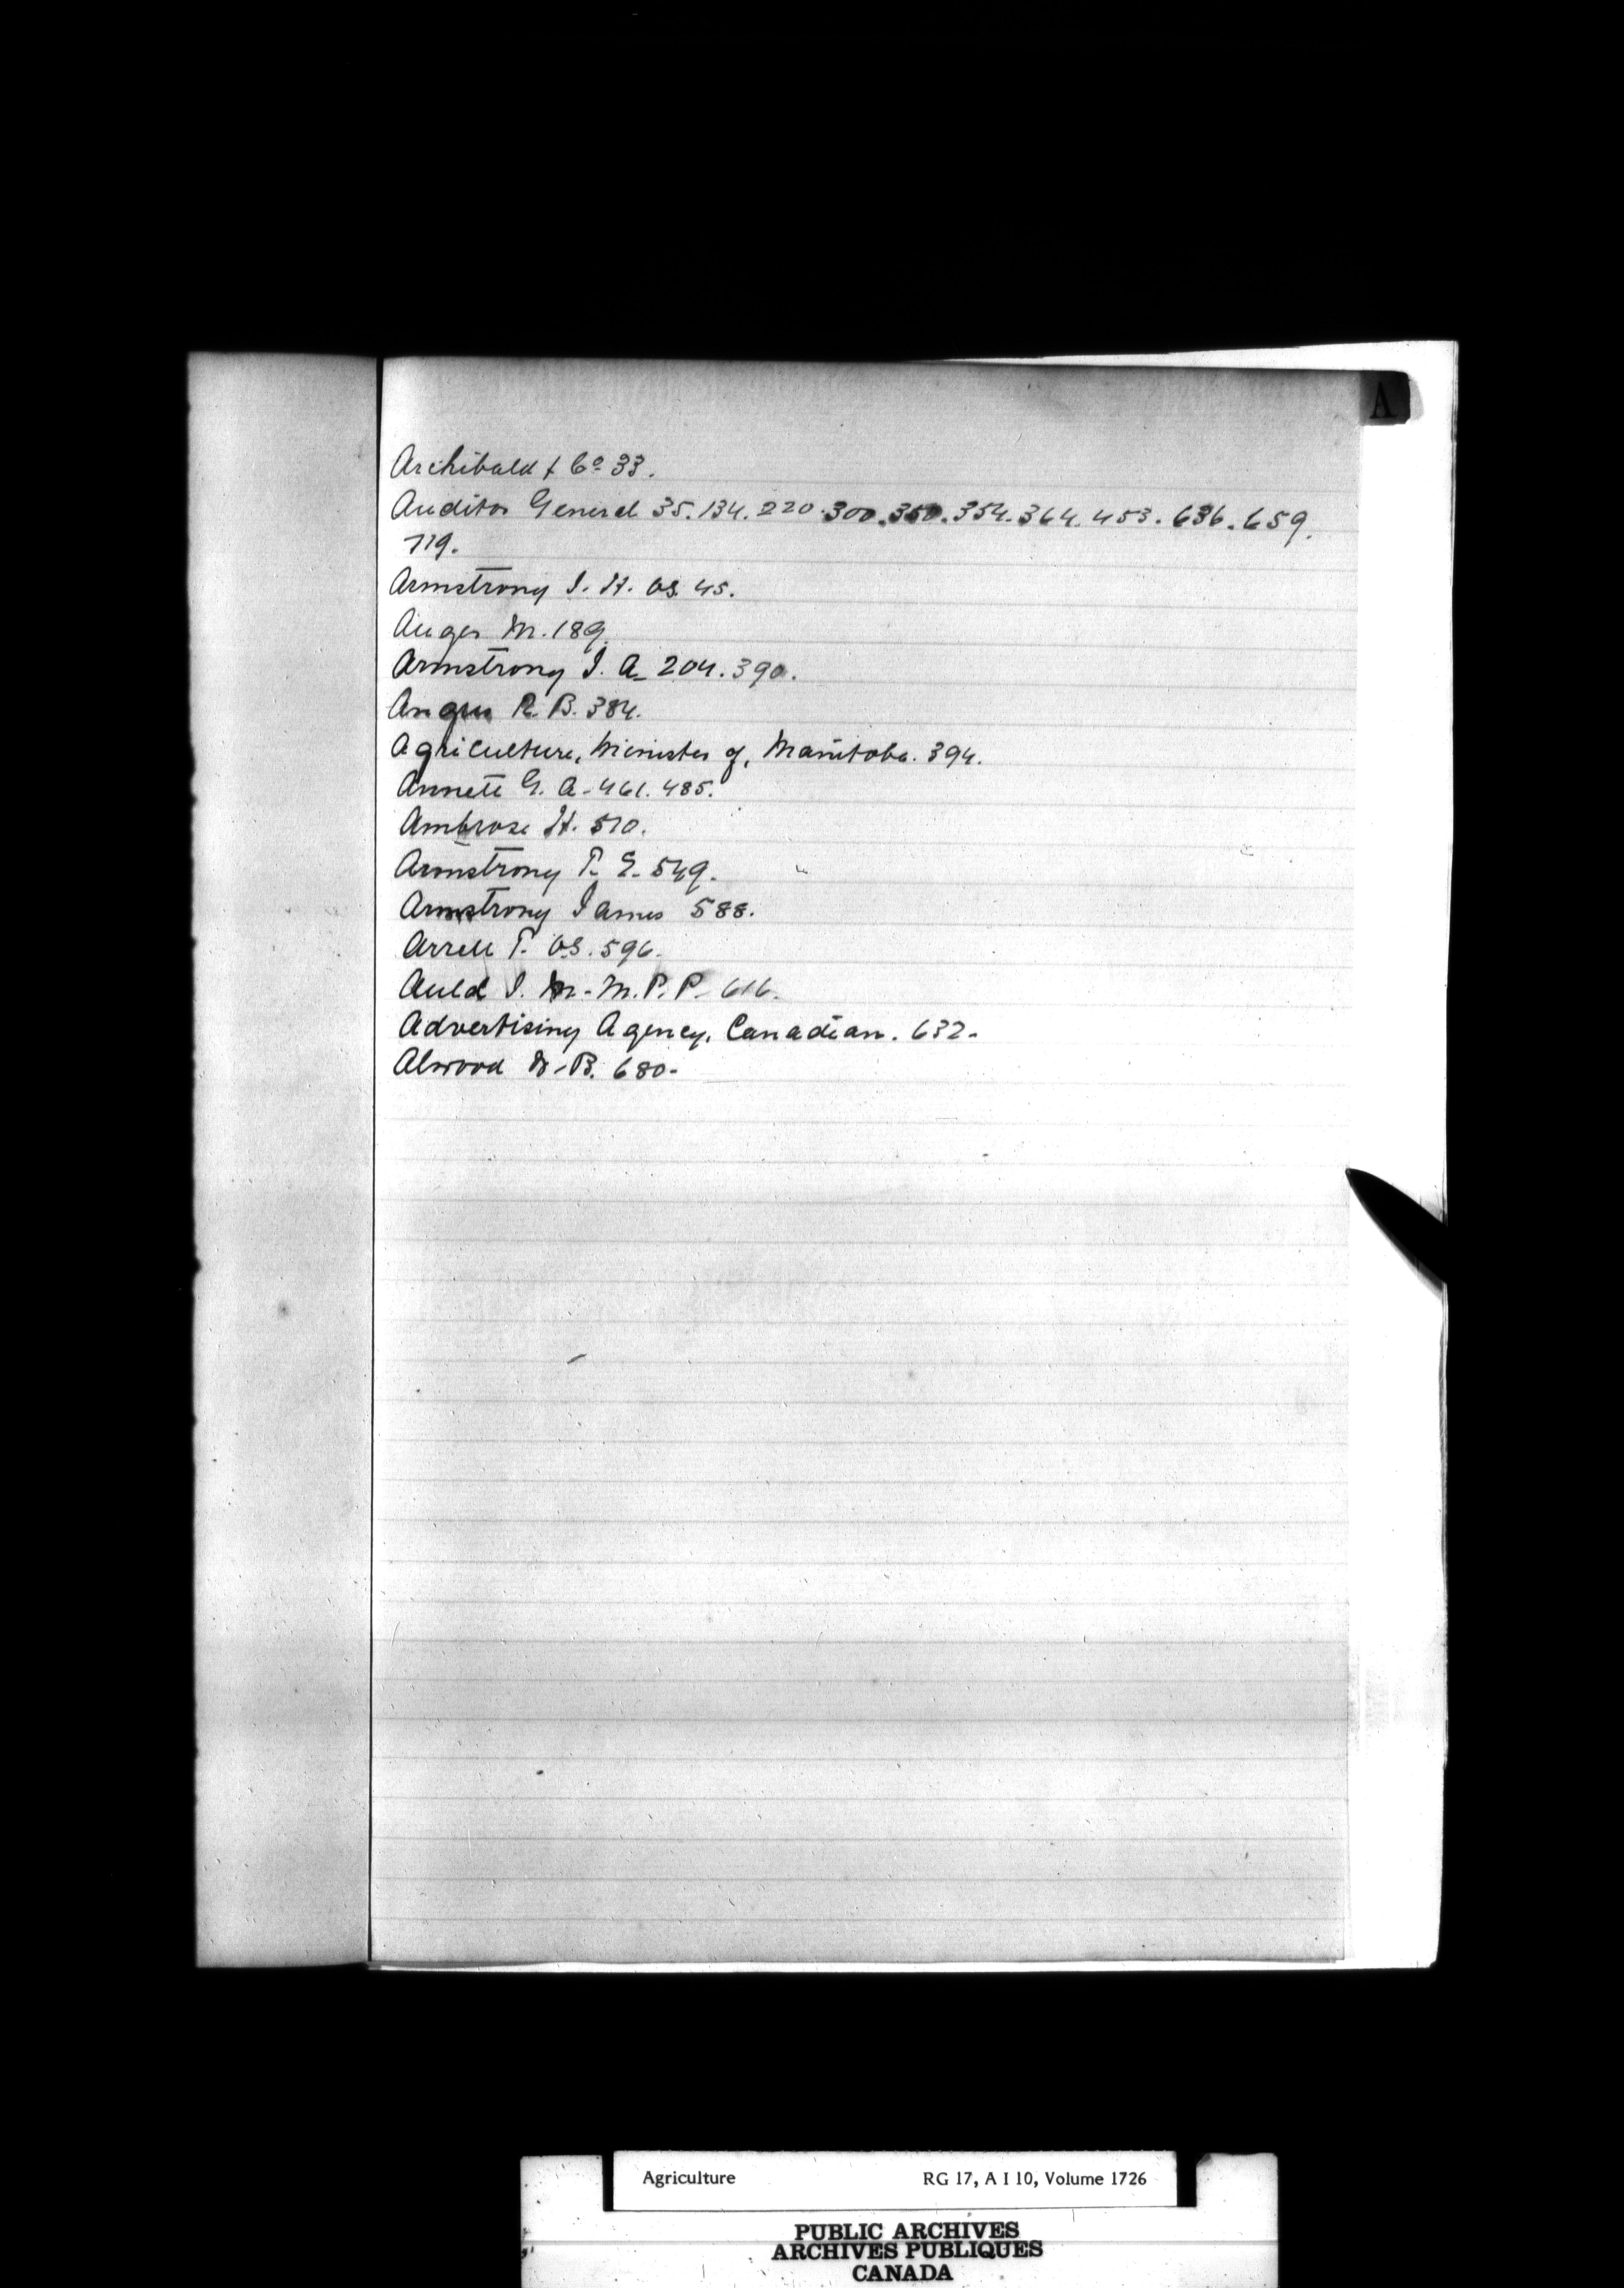 A
Archibald & Co 33.
Auditor General 35. 134. 220. 300. 350. 354. 364. 453. 636. 659.
719.
Armstrong J. H. V.S. 45.
Auger M. 189.
Armstrong J. A. 204. 390.
Angus R. B. 384.
Agriculture, Minister of, Manitoba. 394.
Annett G. A. 461. 485.
Ambrose H. 510.
Armstrong T. E. 549.
Armstrong James 588.
Arrell T. V.S. 596.
Auld J. M. M.P.P. 616.
Advertising Agency, Canadian. 632.
Alwood W. B. 680.
Agriculture RG 17, A I 10, Volume 1726
PUBLIC ARCHIVES
ARCHIVES PUBLIQUES
CANADA